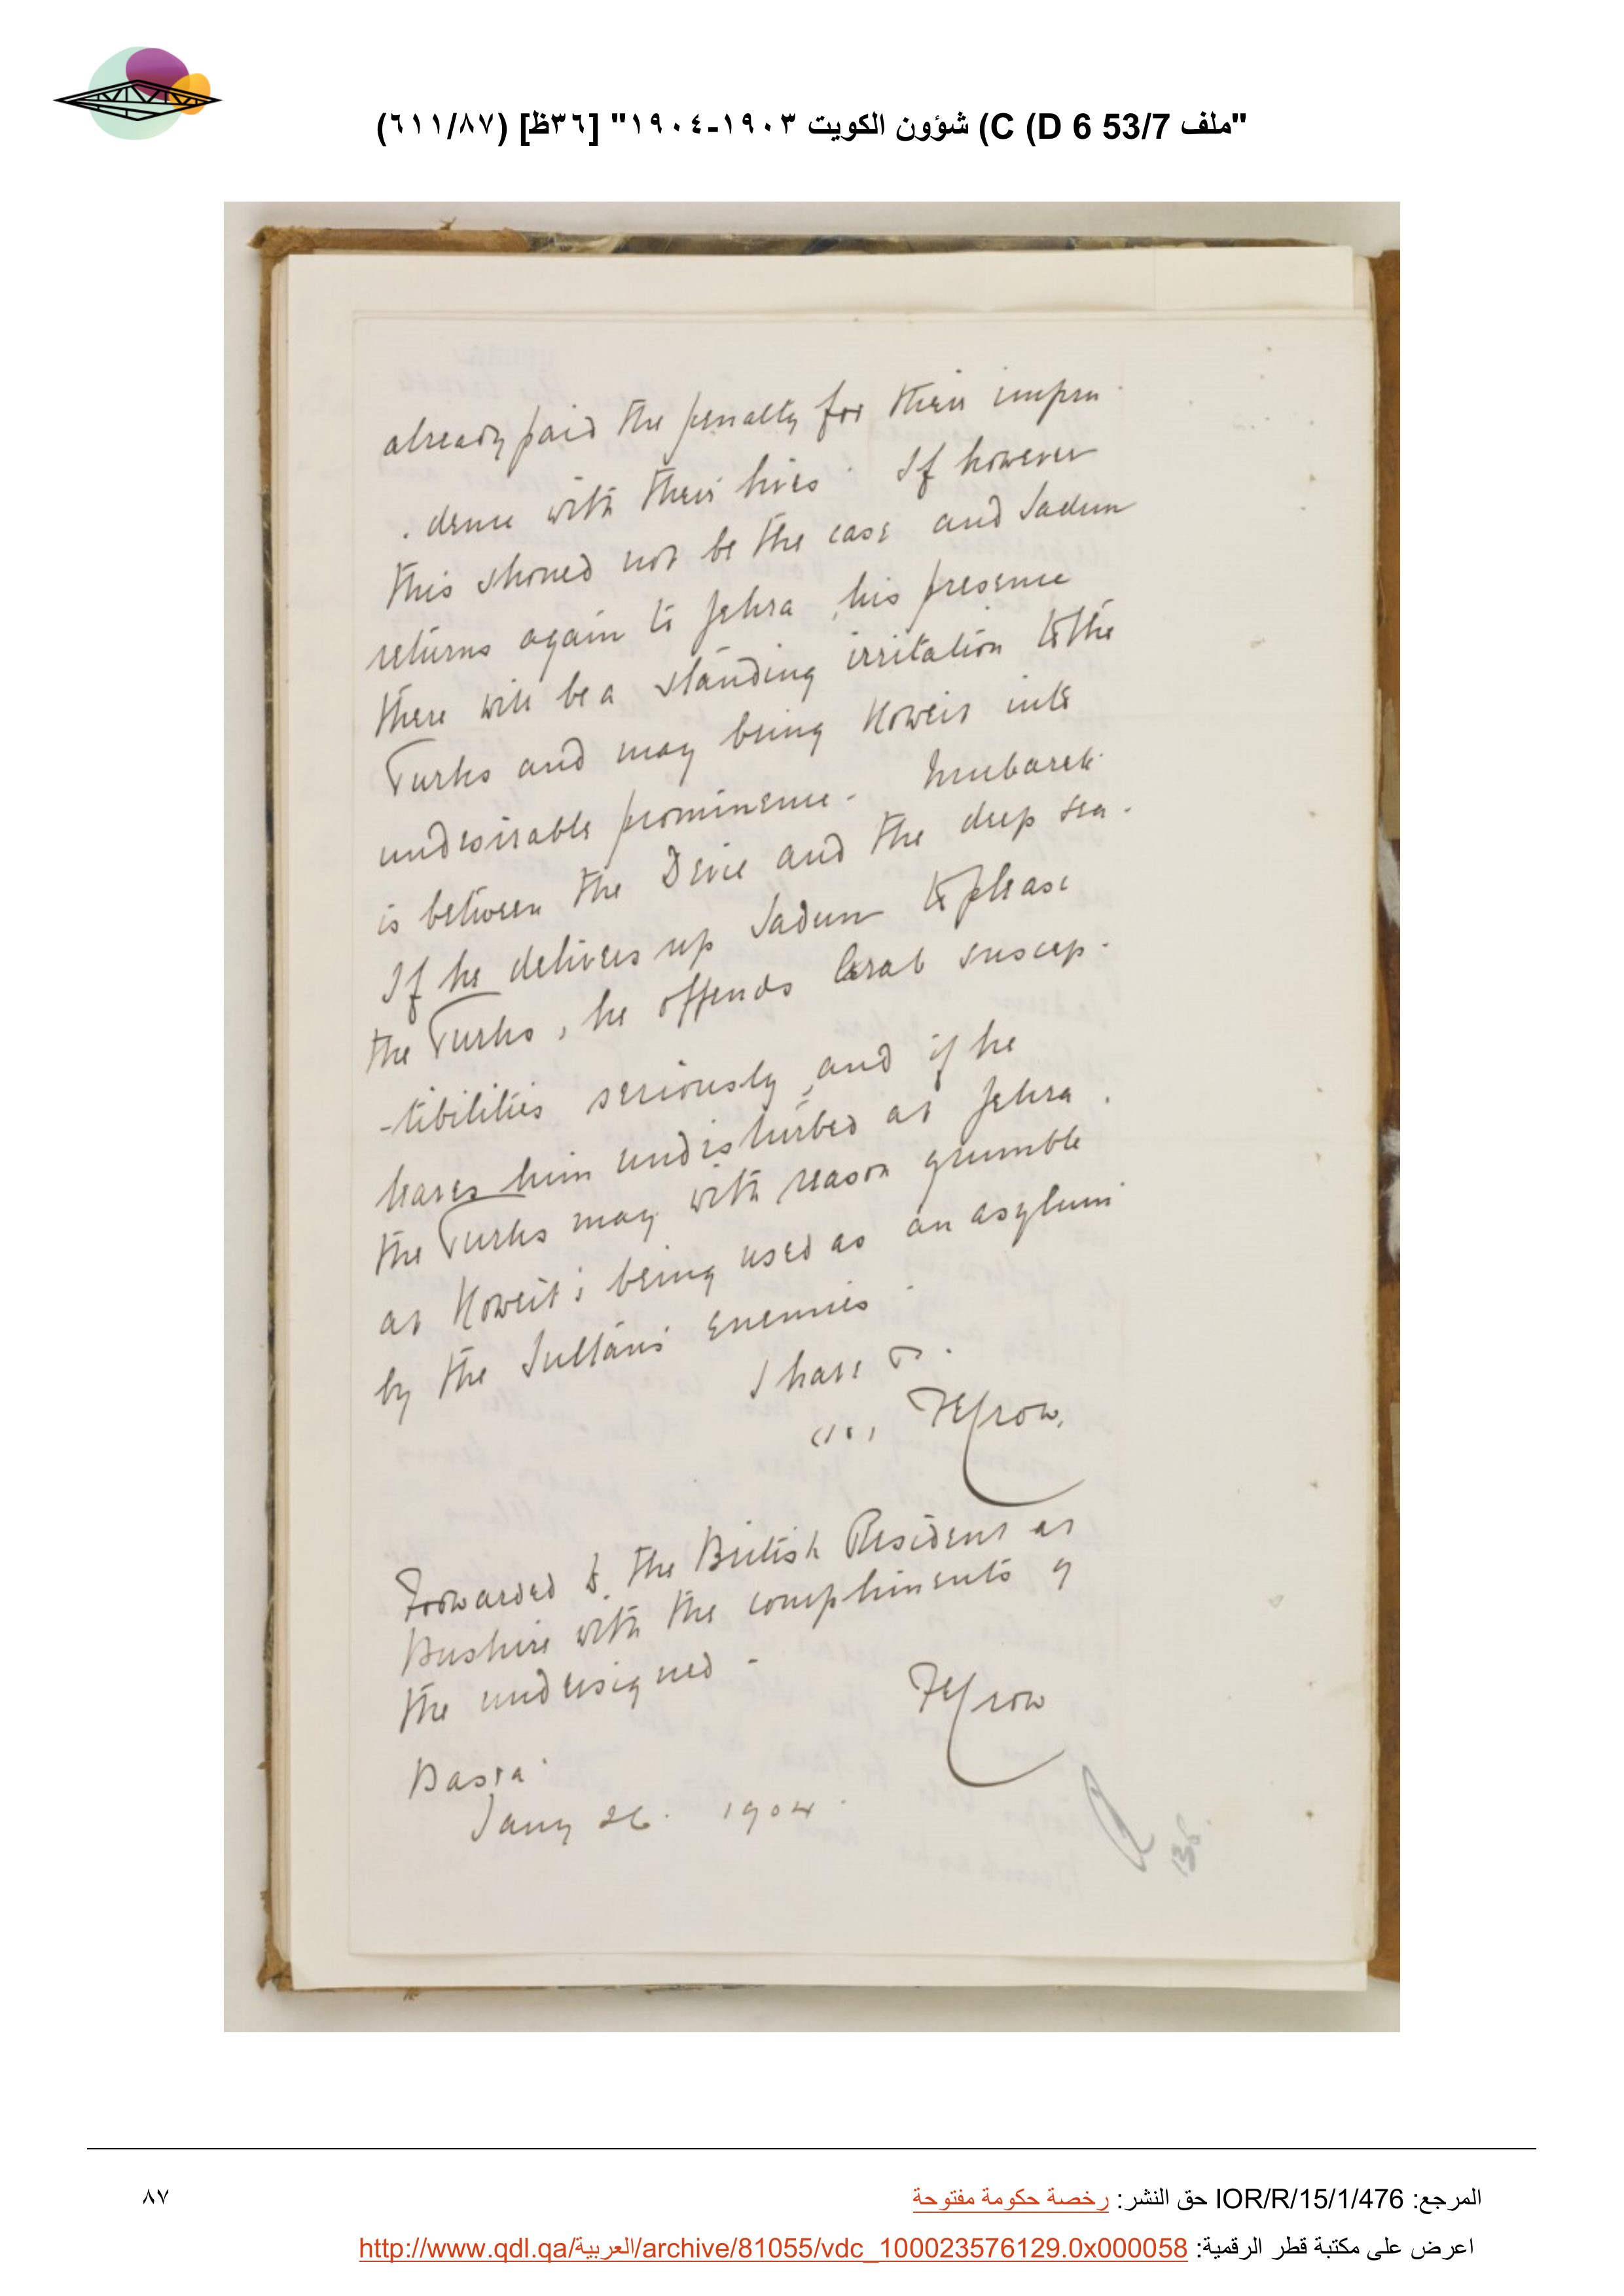 "ملف 53/7 C (D 6) شؤون الكويت ١٩٠٣-١٩٠٤" [٣٦ظ] (٦١١/٨٧)
already paid the penalty for their impru
. dence with their lives. If however
this should not be the case and Sadun
returns again to Jehra, his presence
there will be a standing irritation to the
Turks and may bring Koweit into
undesirable prominence. Mubarek
is between the Devil and the deep sea.
If he delivers up Sadun to please
the Turks, he offends Arab suscep-
-tibilities seriously, and if he
leaves him undisturbed at Jehra.
the Turks may with reason grumble
at Koweit's being used as an asylum
by the Sultan's enemies.
I have &.
FECrow.
Forwarded to the British Resident at
Bushire with the compliments of
the undersigned.
FECrow
Basra.
Jany 26. 1904.
المرجع: IOR/R/15/1/476 حق النشر: رخصة حكومة مفتوحة
٨٧
اعرض على مكتبة قطر الرقمية: http://www.qdl.qa/العربية/archive/81055/vdc_100023576129.0x000058